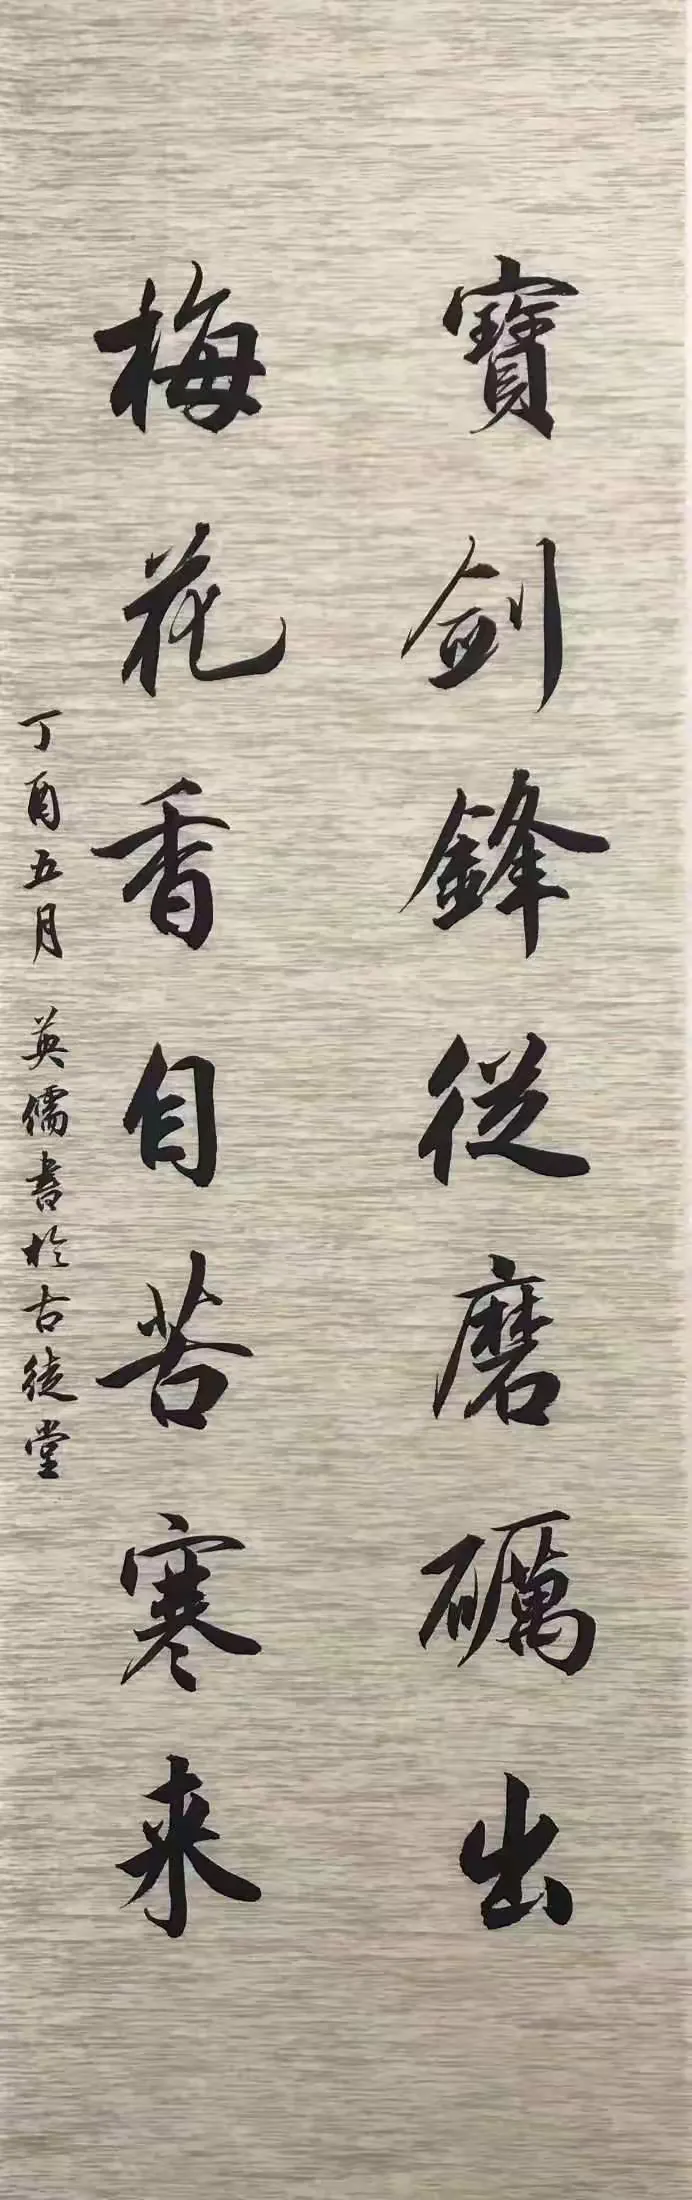 寶劍鋒從磨礪出
梅花香自苦寒来
丁酉五月 英儒書於古徒堂